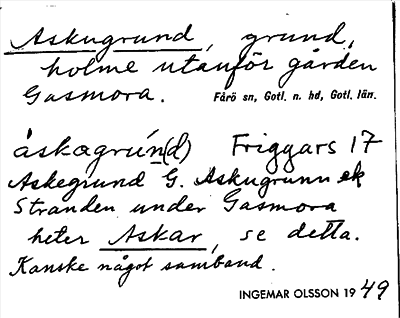 Askugrund, grund,
holme utanför gården
Gasmora. Fårö sn, Gotl. n. hd, Gotl. län.
åskagrún(d) Friggars 17
Askegrund G. Askugrunn ek
Stranden under Gasmora
heter Askar, se detta.
Kanske något samband.
INGEMAR OLSSON 1949